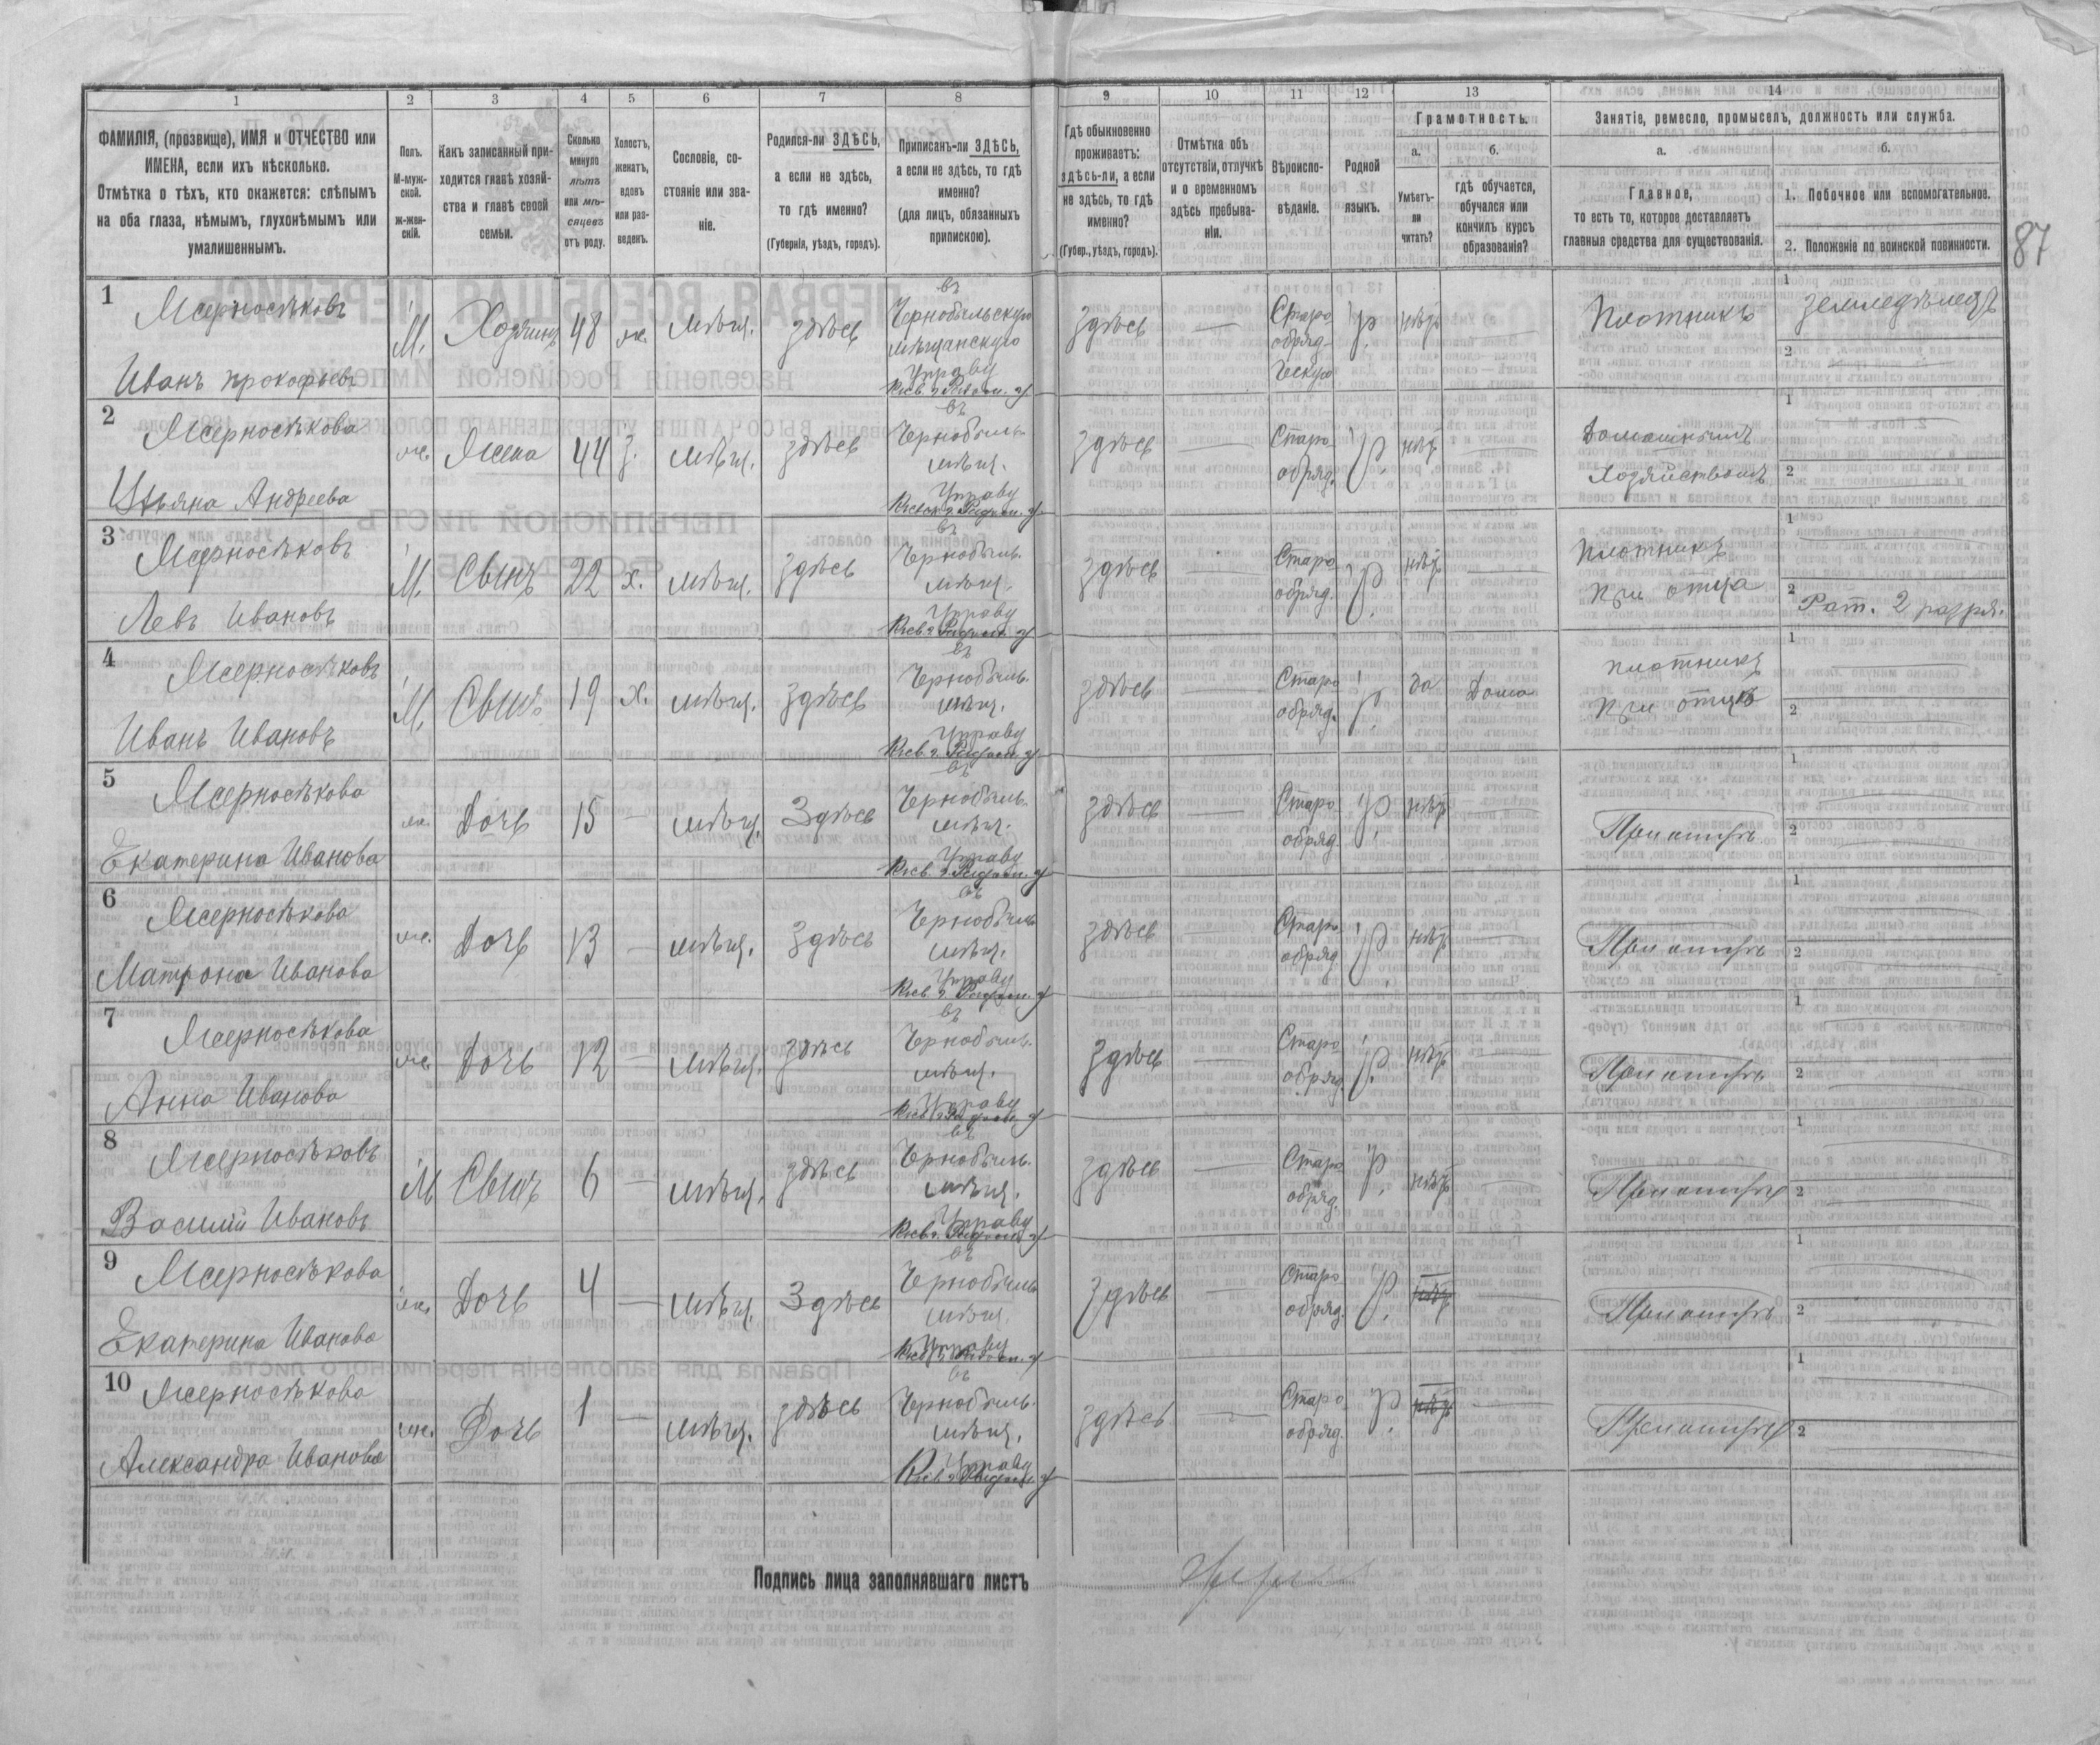 87
1 2 3 4 5 6 7 8 9 10 11 12 13 14
ФАМИЛІЯ, (прозвище), ИМЯ и ОТЧЕСТВО или
ИМЕНА, если ихъ нѣсколько.
Отмѣтка о тѣхъ, кто окажется: слѣпымъ
на оба глаза, нѣмымъ, глухонѣмымъ или
умалишеннымъ.
Полъ.
М-муж-
ской.
ж-жен-
скій.
Какъ записанный при-
ходится главѣ хозяй-
ства и главѣ своей
семьи.
Сколько
минуло
лѣтъ
или мѣ-
сяцевъ
отъ роду.
Холостъ,
женатъ,
вдовъ
или раз-
веденъ.
Сословіе, со-
стояніе или зва-
ніе.
Родился-ли ЗДѢСЬ,
а если не здѣсь,
то гдѣ именно?
(Губернія, уѣздъ, городъ).
Приписанъ-ли ЗДѢСЬ,
а если не здѣсь, то гдѣ
именно?
(для лицъ, обязанныхъ
припискою).
Гдѣ обыкновенно
проживаетъ:
здѣсь-ли, а если
не здѣсь, то гдѣ
именно?
(Губер., уѣздъ, городъ).
Отмѣтка объ
отсутствіи, отлучкѣ
и о временномъ
здѣсь пребыва-
ніи.
Вѣроиспо-
вѣданіе.
Родной
языкъ.
Грамотность.
а.
Умѣетъ-
ли
читать?
б.
гдѣ обучается,
обучался или
кончилъ курсъ
образованія?
Занятіе, ремесло, промыселъ, должность или служба.
а.
Главное,
то есть то, которое доставляетъ
главныя средства для существованія.
б.
1. Побочное или вспомогательное.
2. Положеніе по воинской повинности.
1
Жерносѣковъ
Иванъ Прокофьевъ
М. Хозяинъ 48 ж. мѣщ. здѣсь
въ
Чернобыльскую
мѣщанскую
Управу
здѣсь —
Старо
обряд-
ческую
р. нѣтъ
Плотникъ
1
земледѣлецъ
2
2
Жерносѣкова
Ульяна Андреева
ж. Жена 44 з. мѣщ. здѣсь
въ
Чернобыль-
мѣщ.
Управу
здѣсь —
Старо
обряд.
р. нѣтъ
Домашнимъ
хозяйствомъ
1
2
3
Жерносѣковъ
Левъ Ивановъ
М. Сынъ 22 х. мѣщ. здѣсь
въ
Чернобыль.
мѣщ.
Управу
здѣсь —
Старо
обряд.
р. нѣтъ —
Плотникъ
при отца
1
2 Рат. 2 разря.
4
Жерносѣковъ
Иванъ Ивановъ
М. Сынъ 19 х. мѣщ. здѣсь
въ
Чернобыль.
мѣщ.
Управу
здѣсь —
Старо
обряд.
р. да Дома
плотникъ
при отцѣ
1
2
5
Жерносѣкова
Екатерина Иванова
ж. Дочь 15 — мѣщ. Здѣсь
въ
Чернобыль.
мѣщ.
Управу
здѣсь —
Старо
обряд.
р. нѣтъ
При отцѣ
1
2
6
Жерносѣкова
Матрона Иванова
ж. Дочь 13 — мѣщ. здѣсь
въ
Чернобыль
мѣщ.
Управу
здѣсь —
Старо
обряд.
р. нѣтъ
При отцѣ
1
2
7
Жерносѣкова
Анна Иванова
ж. Дочь 12 — мѣщ. здѣсь
въ
Чернобыль.
мѣщ.
Управу
здѣсь —
Старо
обряд.
р. нѣтъ
При отцѣ
1
2
8
Жерносѣковъ
Василій Ивановъ
М Сынъ 6 — мѣщ. здѣсь
въ
Чернобыль.
мѣщ.
Управу
здѣсь —
Старо
обряд.
р. нѣтъ —
При отцѣ
1
2
9
Жерносѣкова
Екатерина Иванова
ж. Дочь 4 — мѣщ. Здѣсь
въ
Чернобыль
мѣщ.
Управу
здѣсь —
Старо
обряд.
р. нѣтъ
При отцѣ
1
2
10
Жерносѣкова
Александра Иванова
ж. Дочь 1 — мѣщ. здѣсь
въ
Чернобыль.
мѣщ.
Управу
здѣсь —
Старо
обряд.
р. нѣтъ —
При отцѣ
1
2
Подпись лица заполнявшаго листъ